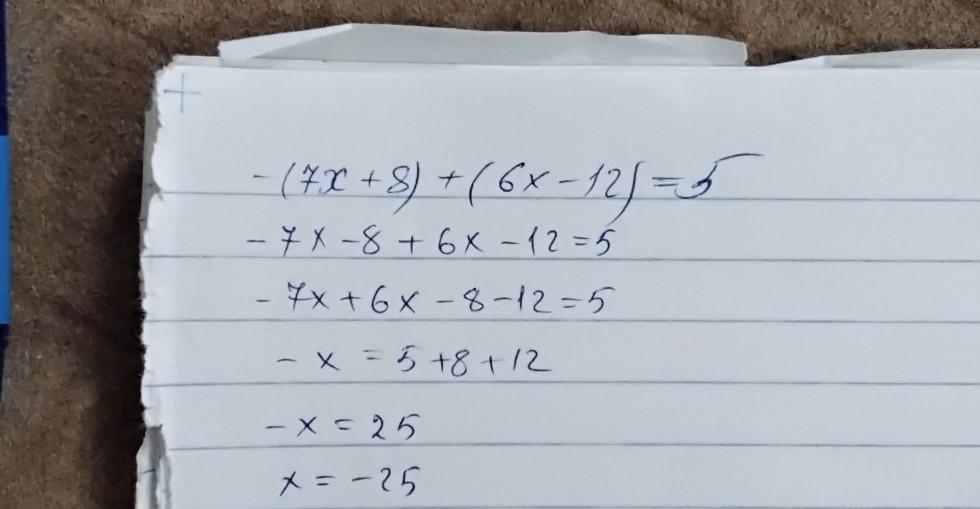 +
-(7x+8)+(6x-12)=5
-7x-8+6x-12=5
-7x+6x-8-12=5
-x=5+8+12
-x=25
x=-25